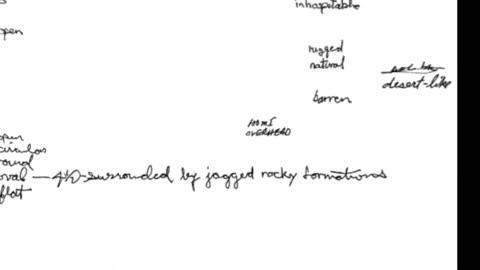 inhospitable
open
rugged
natural
desert-like
barren
OVERHEAD
open
circular
round
oval — 4½-surrounded by jagged rocky formations
flat